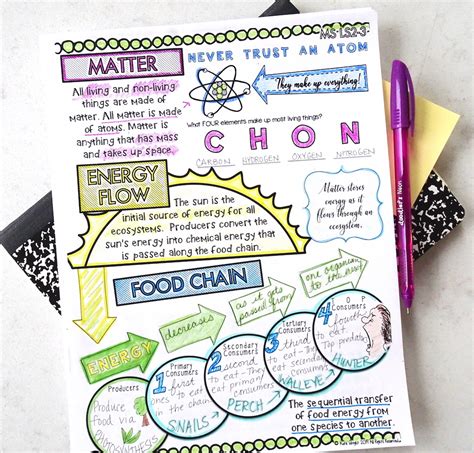 MS-LS2-3
MATTER
NEVER TRUST AN ATOM
They make up everything!
All living and non-living
things are made of
matter. All matter is made
of atoms. Matter is
anything that has mass
and takes up space.
What FOUR elements make up most living things?
C H O N
CARBON HYDROGEN OXYGEN NITROGEN
ENERGY
FLOW
The sun is the
initial source of energy for all
ecosystems. Producers convert the
sun's energy into chemical energy that
is passed along the food chain.
Matter stores
energy as it
flows through an
ecosystem.
FOOD CHAIN
ENERGY
decreases
as it gets
passed from
one organism
to the next
Producers
Produce
food via
PHOTOSYNTHESIS
1 Primary
Consumers
first
ones to eat
in the chain
SNAILS
2 Secondary
Consumers
second
to eat - They
eat primary
consumers
PERCH
3 Tertiary
Consumers
third
to eat - They
eat
WALLEYE
4 TOP
fourth
to eat -
Top predator
HUNTER
The sequential transfer
of food energy from
one species to another.